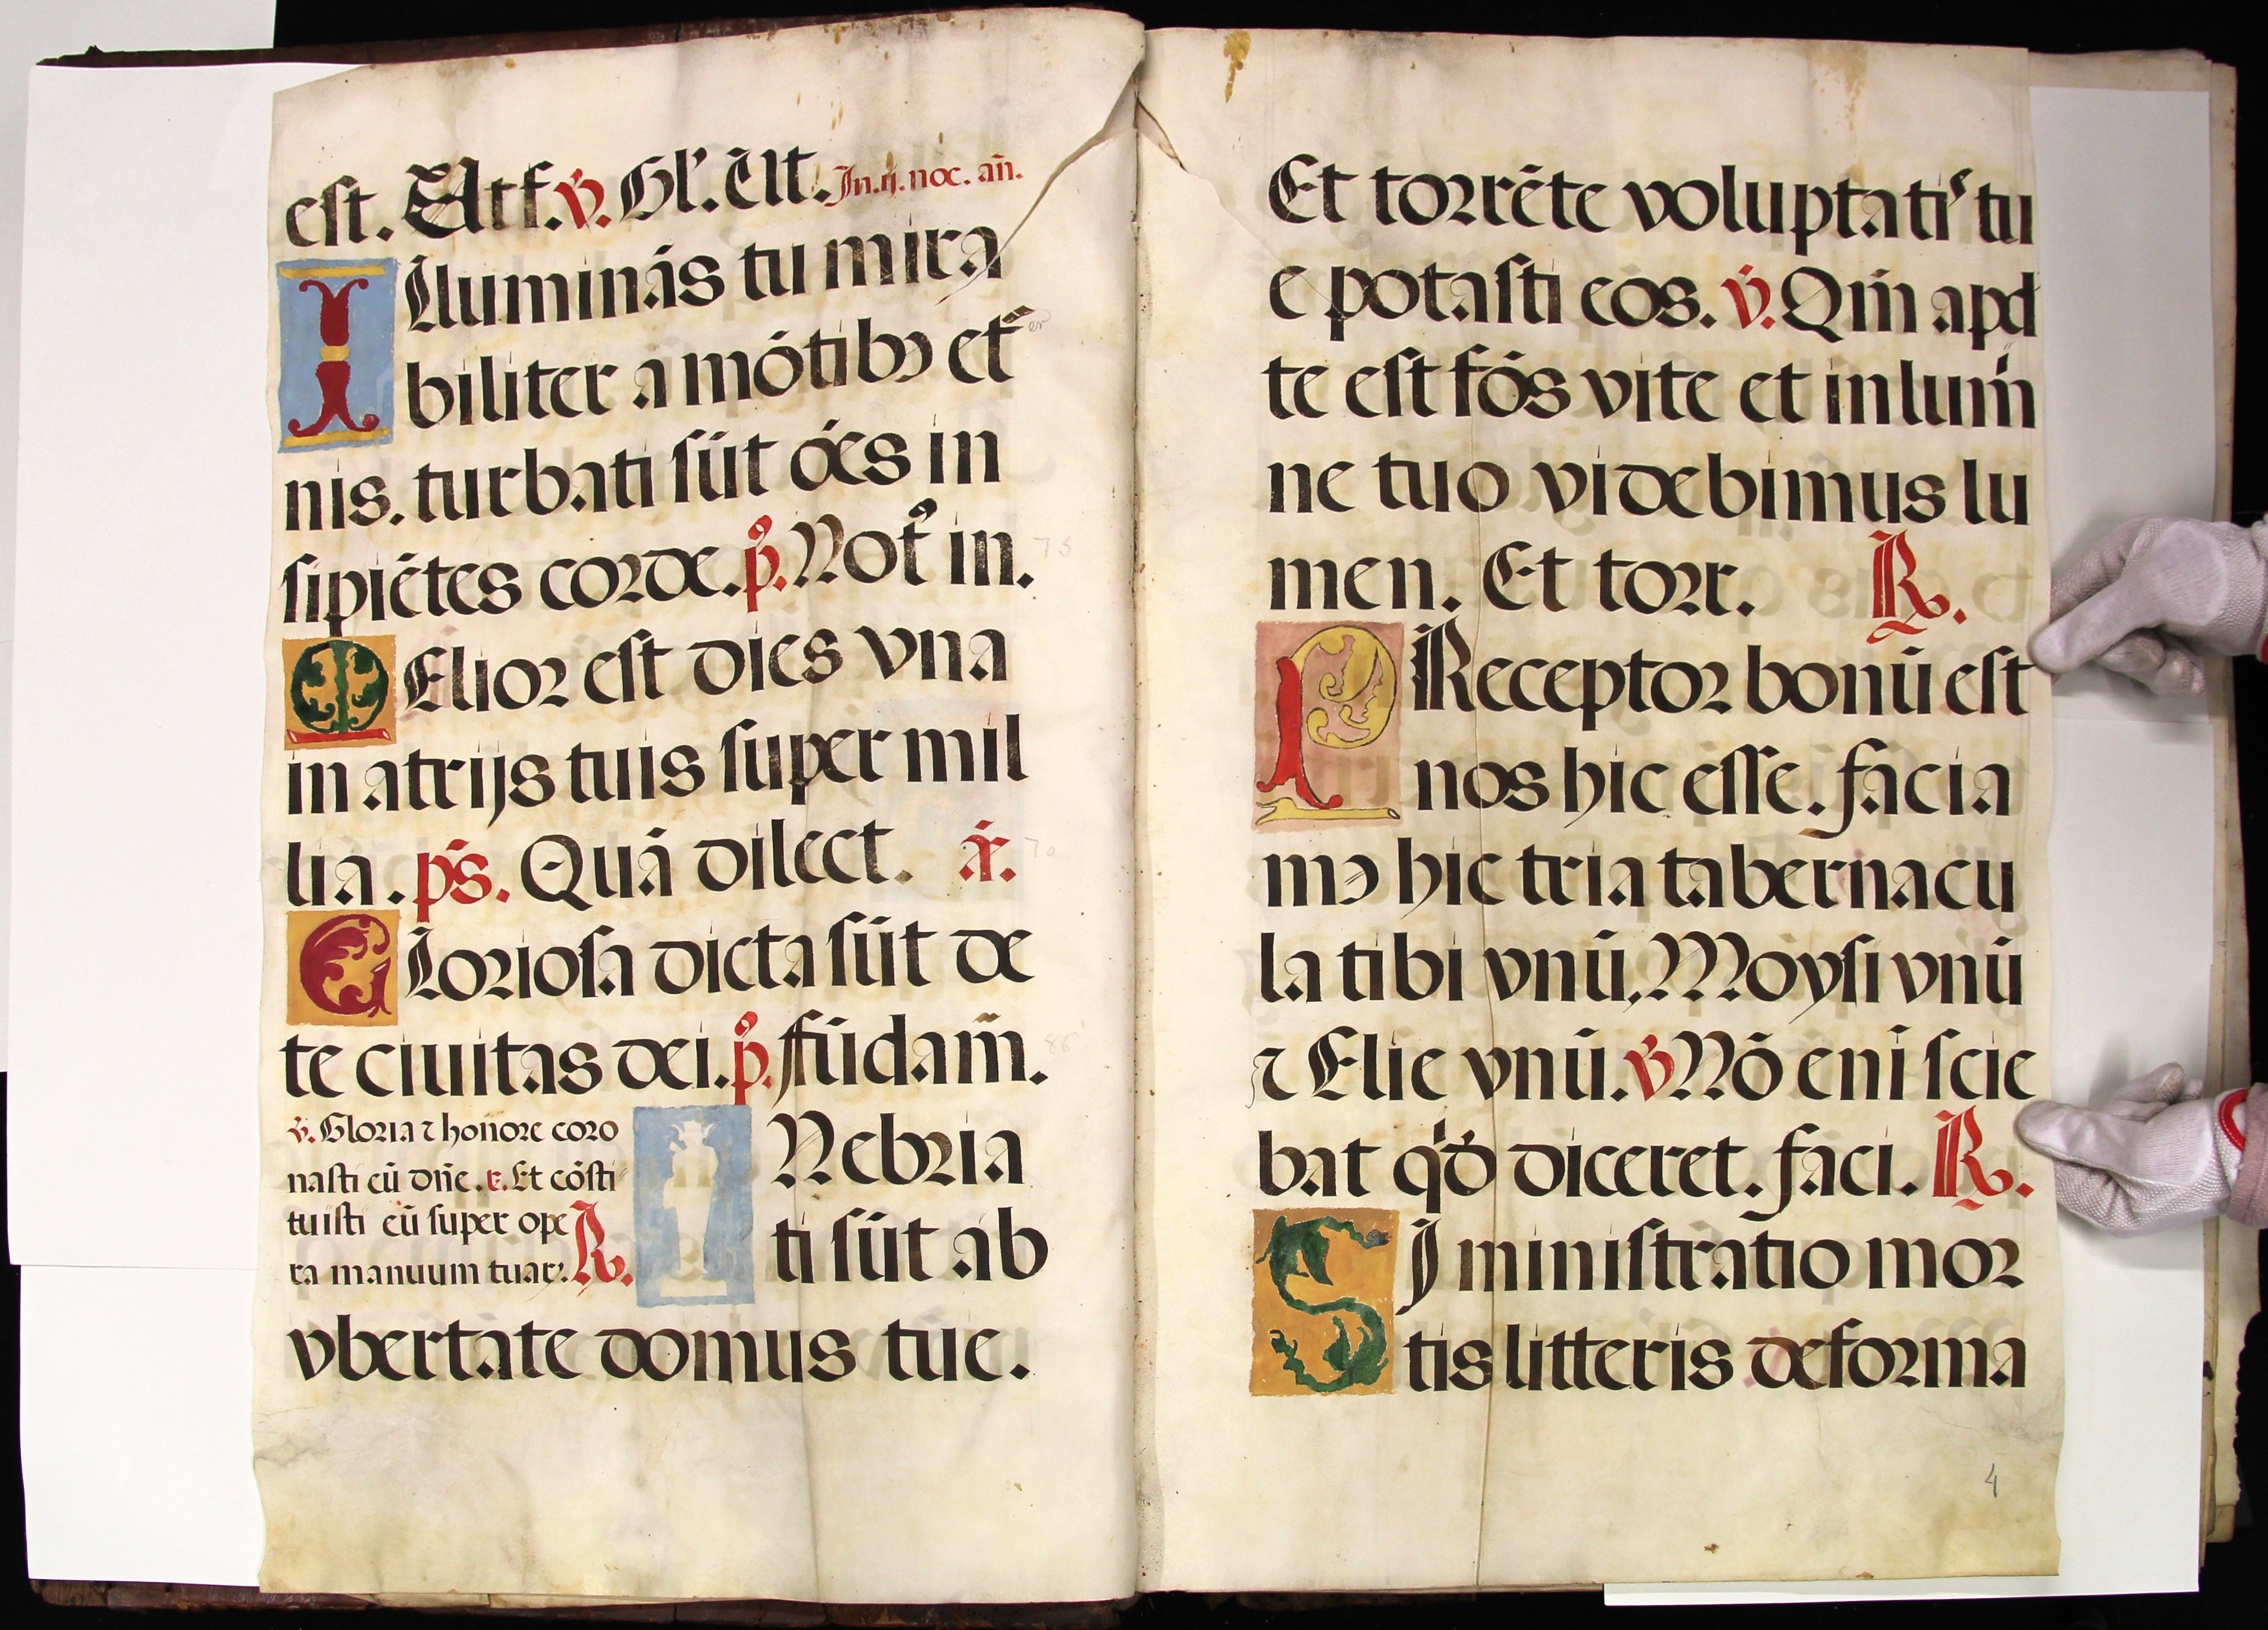 est. Et Atf. v̇. Gl'. Elt. In. ij. noc. añ.
Illuminás tu mira
biliter a mótibꝫ et̃
er
nis. turbati sūt óes in
sipiētes corde. p̊. Not̊ in.
73
MElior est dies vna
in atrijs tuis super mil
lia. ps. Quā dilect. a.
70
GLoriosa dicta sūt de
te ciuitas dei. p̊. fūdam̃.
86
v̇. Gloria ⁊ honore coro
nasti eū dñe. r. Et cōsti
tuisti eū super ope
ra manuum tuaꝝ. ℟.
INebria
ti sūt ab
vbertate domus tue.
Et torrēte voluptatiˢ tu
e potasti eos. v̇. Qm̄ apd
te est fōs vite et in lum̄
ne tuo videbimus lu
men. Et torr. ℟.
PReceptor bonū est
nos hic esse. facia
mꝰ hic tria tabernacu
la tibi vnū, Moysi vnū
⁊ Elie vnū. v̇ Nō eni scie
bat qd̓ diceret. faci. ℟.
SI ministratio mor
tis litteris deforma
4